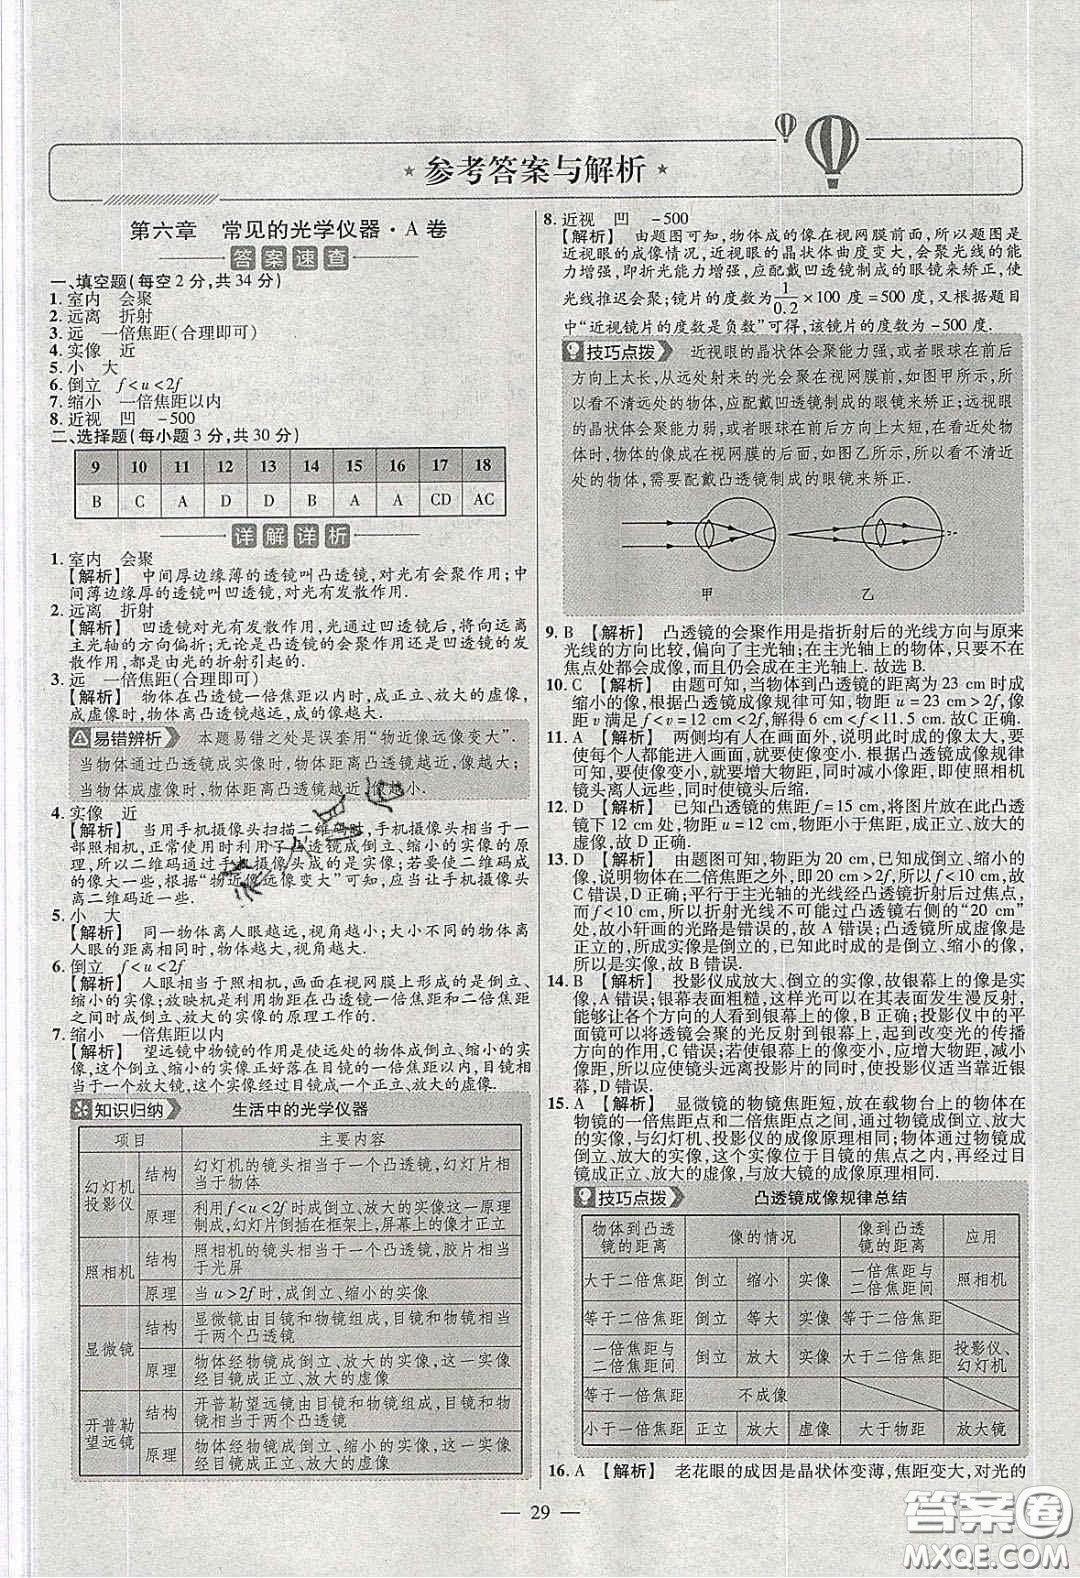 参考答案与解析
第六章 常见的光学仪器·A卷
答案速查
一、填空题(每空2分,共34分)
1. 室内 会聚
2. 远离 折射
3. 远 一倍焦距(合理即可)
4. 实像 近
5. 小 大
6. 倒立 f<u<2f
7. 缩小 一倍焦距以内
8. 近视 凹 -500
二、选择题(每小题3分,共30分)
9 10 11 12 13 14 15 16 17 18
B C A D D B A A CD AC
详解详析
1. 室内 会聚
【解析】 中间厚边缘薄的透镜叫凸透镜,对光有会聚作用;中
间薄边缘厚的透镜叫凹透镜,对光有发散作用.
2. 远离 折射
【解析】 凹透镜对光有发散作用,光通过凹透镜后,将向远离
主光轴的方向偏折;无论是凸透镜的会聚作用还是凹透镜的发
散作用,都是由光的折射引起的.
3. 远 一倍焦距(合理即可)
【解析】 物体在凸透镜一倍焦距以内时,成正立、放大的虚像,
成虚像时,物体离凸透镜越远,成的像越大.
易错辨析 本题易错之处是误套用“物近像远像变大”.
当物体通过凸透镜成实像时,物体距离凸透镜越近,像越大;
当物体成虚像时,物体距离凸透镜越近,像越小.
4. 实像 近
【解析】 当用手机摄像头扫描二维码时,手机摄像头相当于一
部照相机,正常使用时利用了凸透镜成倒立、缩小的实像的原
理,所以二维码通过手机摄像头成的是实像;若要使二维码成
的像大一些,根据“物近像远像变大”可知,应当让手机摄像头
离二维码近一些.
5. 小 大
【解析】 同一物体离人眼越远,视角越小;大小不同的物体离
人眼的距离相同时,物体越大,视角越大.
6. 倒立 f<u<2f
【解析】 人眼相当于照相机,画面在视网膜上形成的是倒立、
缩小的实像;放映机是利用物距在凸透镜一倍焦距和二倍焦距
之间时成倒立、放大的实像的原理工作的.
7. 缩小 一倍焦距以内
【解析】 望远镜中物镜的作用是使远处的物体成倒立、缩小的实
像,这个像在目镜的一倍焦距以内,且靠近焦点处,此时目镜相当
于一个放大镜,这个实像经过目镜成正立、放大的虚像.
知识归纳 生活中的光学仪器
项目 主要内容
幻灯机投影仪 结构 幻灯机的镜头相当于一个凸透镜,幻灯片相
当于物体
原理 利用f<u<2f时成倒立、放大的实像的原理
制成,幻灯片倒插在框架上,屏幕上的像才正立
照相机 结构 照相机的镜头相当于一个凸透镜,胶片相当
于光屏
原理 当u>2f时,成倒立、缩小的实像
显微镜 结构 显微镜由目镜和物镜组成,目镜和物镜相当
于两个凸透镜
原理 物体经物镜成倒立、放大的实像,这一实像
经目镜成正立、放大的虚像
开普勒望远镜 结构 开普勒望远镜有目镜和物镜组成,目镜和物
镜相当于两个凸透镜
原理 物体经物镜成倒立、缩小的实像,这一实像
经目镜成正立、放大的虚像
8. 近视 凹 -500
【解析】 由题图可知,物体成的像在视网膜前面,所以题图是
近视眼的成像情况,近视眼的晶状体曲度变大,会聚光线的能
力增强,即折光能力增强,应配戴凹透镜制成的眼镜来矫正,使
光线推迟会聚;镜片的度数为1/0.2×100度=500度,又根据题
目中“近视镜片的度数是负数”可得,该镜片的度数为-500度.
技巧点拨 近视眼的晶状体会聚能力强,或者眼球在前后
方向上太长,从远处射来的光会聚在视网膜前,如图甲所示,所
以看不清远处的物体,应配戴凹透镜制成的眼镜来矫正;远视眼
的晶状体会聚能力弱,或者眼球在前后方向上太短,在看近处物
体时,物体的像成在视网膜的后面,如图乙所示,所以看不清近
处的物体,需要配戴凸透镜制成的眼镜来矫正.
甲 乙
9. B 【解析】 凸透镜的会聚作用是指折射后的光线方向与原来
光线的方向比较,偏向了主光轴;在主光轴上的物体,只要不在
焦点处都会成像,而且仍会成在主光轴上.故选B.
10. C 【解析】 由题可知,当物体到凸透镜的距离为23 cm时成
缩小的像,根据凸透镜成像规律可知,物距u=23 cm>2f,像
距v满足f<v=12 cm<2f,解得6 cm<f<11.5 cm.故C正确.
11. A 【解析】 两侧均有人在画面外,说明此时成的像太大,要
使每个人都能进入画面,就要使像变小.根据凸透镜成像规律
可知,要使像变小,就要增大物距,同时减小像距,即使照相机
镜头离人远些,同时使镜头后缩.
12. D 【解析】 已知凸透镜的焦距f=15 cm,将图片放在凸透
镜下12 cm处,物距u=12 cm,物距小于焦距,成正立、放大的
虚像,故D正确.
13. D 【解析】 由题图可知,物距为20 cm,已知成倒立、缩小的
实像,说明物体在二倍焦距之外,即20 cm>2f,则f<10 cm,故
C错误,D正确;平行于主光轴的光线经凸透镜折射后过焦点,
而f<10 cm,所以折射光线不可能过凸透镜右侧的“20 cm”
处,故小轩画的光路是错误的,故A错误;凸透镜所成虚像是
正立的,所成实像是倒立的,已知成的是倒立、缩小的像,
所以是实像,故B错误.
14. B 【解析】 投影仪成放大、倒立的实像,故银幕上的像是实
像,A错误;银幕表面粗糙,这样光可以在其表面发生漫反射,
能够让各个方向的人看到银幕上的像,B正确;投影仪中的平
面镜可以将透镜会聚的光反射到银幕上,起到改变光的传播
方向的作用,C错误;若使银幕上的像变小,应增大物距,减小
像距,故应使镜头远离投影片的同时,使投影仪适当靠近银
幕,D错误.
15. A 【解析】 显微镜的物镜焦距短,放在载物台上的物体在
物镜的一倍焦点和二倍焦点之间,通过物镜成倒立、放大
的实像,与幻灯机、投影仪的成像原理相同;物镜成倒立、放
大的实像后,这个实像又位于目镜的焦点之内,再次通过
目镜成正立、放大的虚像,与放大镜的成像原理相同.
技巧点拨 凸透镜成像规律总结
物体到凸透镜的距离 像的情况 像到凸透镜的距离 应用
大于二倍焦距 倒立 缩小 实像 一倍焦距与二倍焦距间 照相机
等于二倍焦距 倒立 等大 实像 等于二倍焦距
一倍焦距与二倍焦距间 倒立 放大 实像 大于二倍焦距 投影仪、幻灯机
等于一倍焦距 不成像
小于一倍焦距 正立 放大 虚像 大于物距 放大镜
16. A 【解析】 老花眼的成因是晶状体变薄,焦距变大,对光的
— 29 —
答案圈
MXQE.COM